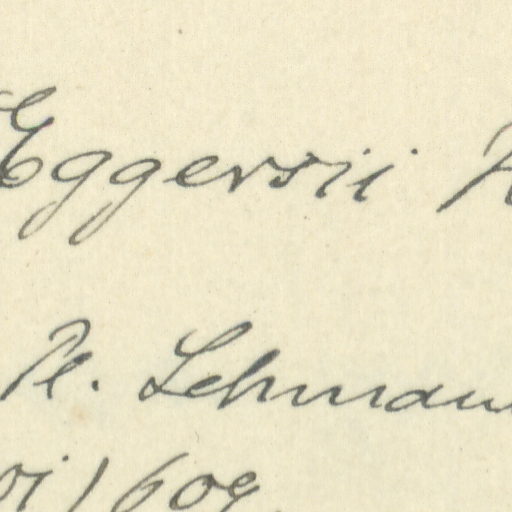 Eggersii
Pl. Lehmann
1609